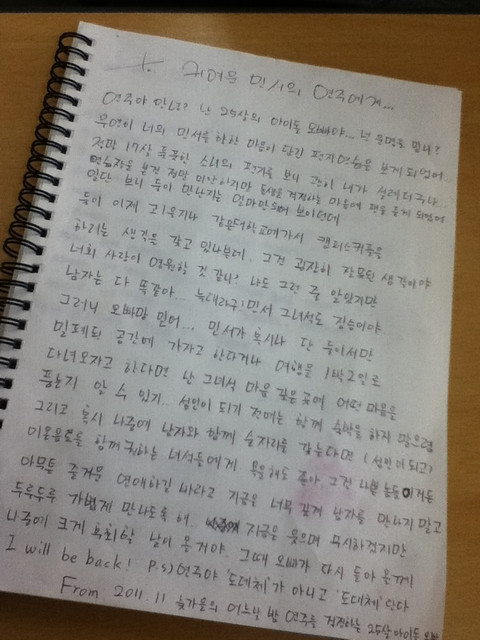 t. 귀여운 민서의 연주에게...
연주야 안녕? 난 25살의 아이돌 오빠야... 넌 누명을 믿니?
우연히 너의 민서를 향한 마음이 담긴 편지연습을 보게 되었어
정말 17살 풋풋한 소녀의 편지를 보니 괜히 내가 설레더구나
연습장을 본건 정말 미안하지만 동생을 걱정하는 마음에 펜을 들게 되었어
일단 보니 둘이 만난지는 얼마안되어 보이던데
둘이 이제 고1을지나 같은대학교에가서 캠퍼스커플을
하려는 생각을 갖고 있나본데. 그건 굉장히 잘못된 생각이야
너희 사랑이 영원할 것 같니? 나도 그런 줄 알았지만
남자는 다 똑같아... 늑대라구! 민서 그녀석도 짐승이야
그러니 오빠말 믿어... 민서가 혹시나 단 둘이서만
밀폐된 공간에 가자고 한다거나 여행을 1박2일로
다녀오자고 한다면 난 그녀석 마음 깊은 곳에 어떤 마음을
품는지 알 수 있지... 성인이 되기 전에는 함께 숙박을 하지 말으렴
그리고 혹시 나중에 남자와 함께 술자리를 갖는다면 (성인이 되고)
이온음료를 함께 권하는 녀석들에게 욕을해도 좋아. 그건 나쁜 놈들이거든
아무튼 즐거운 연애하길 바라고 지금은 너무 깊게 남자를 만나지 말고
두루두루 가볍게 만나도록 해.. 지금은 웃으며 무시하겠지만
나중에 크게 후회할 날이 올거야. 그때 오빠가 다시 돌아올게
I will be back! P.s) 연주야 '도데체'가 아니고 '도대체'란다
From 2011. 11 늦가을의 어느날 밤 연주를 걱정하는 25살아이돌 오빠